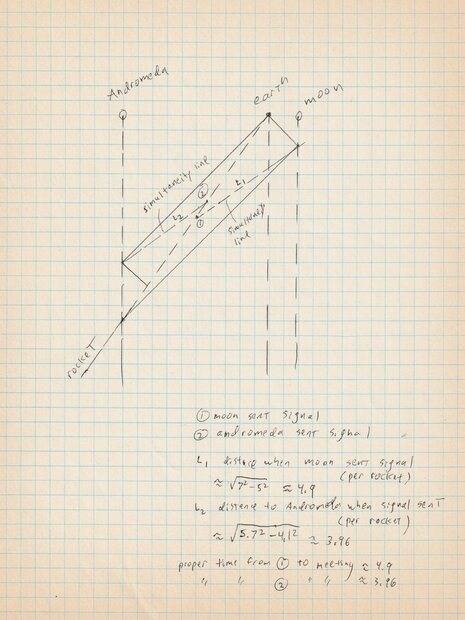 Andromeda
earth
moon
simultaneity line
②
L₂
L₁
①
simultaneity
line
rocket
① moon sent signal
② andromeda sent signal
L₁ distance when moon sent signal
(per rocket)
≈ √7²-5² ≈ 4.9
L₂ distance to Andromeda when signal sent
(per rocket)
≈ √5.7²-4.1² ≈ 3.96
proper time from ① to meeting ≈ 4.9
" " ② " " ≈ 3.96